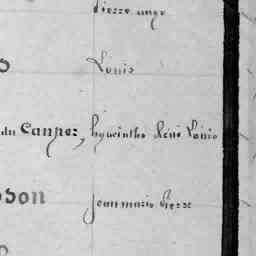 Pierre ange
Louis
du Canper, hyacinthe René Louis
son
jean marie Pierre